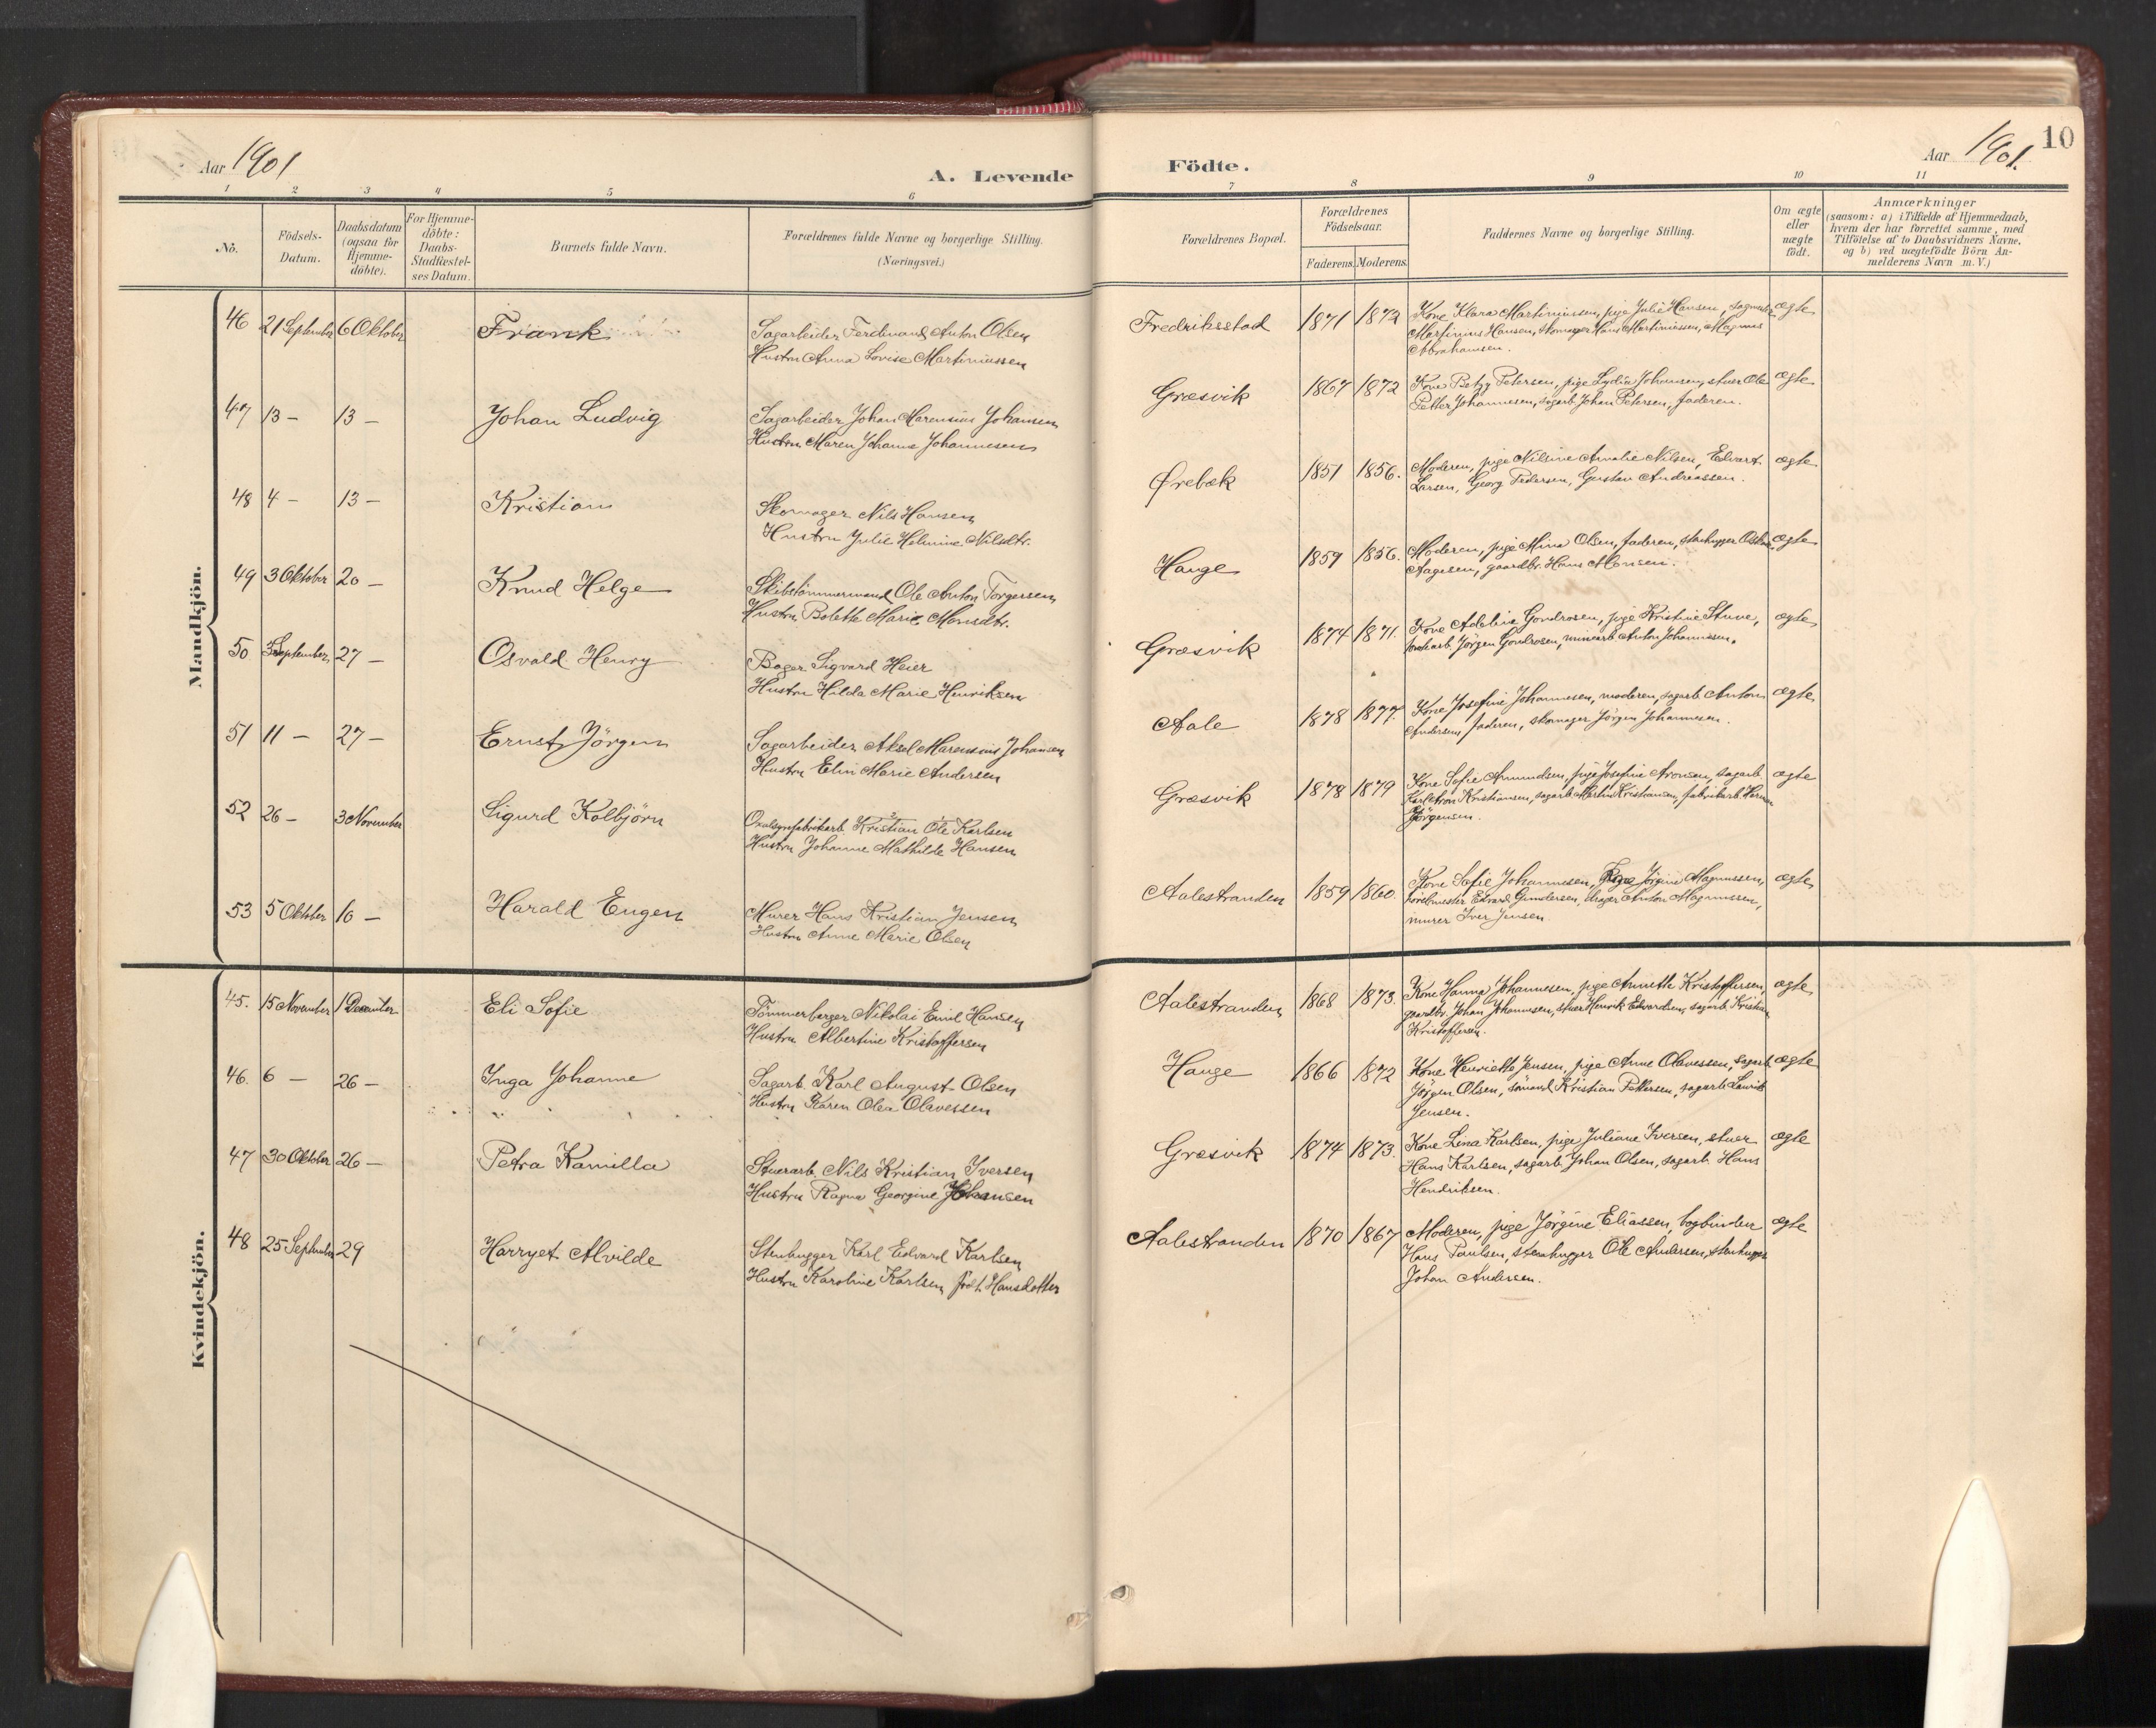 Aar 1901
A. Levende
Födte.
Aar 1901.
10
1 2 3 4 5 6 7 8 9 10 11
No.
Födsels-
Datum.
Daabsdatum
(ogsaa for
Hjemme-
döbte).
For Hjemme-
döbte:
Daabs-
Stadfæstel-
ses Datum.
Barnets fulde Navn.
Forældrenes fulde Navne og borgerlige Stilling.
(Næringsvei.)
Forældrenes Bopæl.
Forældrenes
Födselsaar.
Faderens. Moderens.
Faddernes Navne og borgerlige Stilling.
Om ægte
eller
uægte
födt.
Anmærkninger
(saasom: a) i Tilfælde af Hjemmedaab,
hvem der har forrettet samme, med
Tilföielse af to Daabsvidners Navne.
og b) ved uægtefödte Börn An-
melderens Navn m. V.)
Mandkjön.
46 21 September 6 Oktober Frank
Sagarbeider Ferdinand Anton Olsen
Hustru Anna Lovise Martiniussen
Fredriksstad 1871 1872
Kone Klara Martiniussen, pige Julie Hansen, sagmester
Martinius Hansen, skomager Hans Martiniussen, Magnus
Abrahamsen.
ægte
47 13 – 13 – Johan Ludvig
Sagarbeider Johan Marensius Johansen
Hustru Maren Johanne Johannesen
Græsvik 1867 1872
Kone Betzy Petersen, pige Lydia Johansen, stuer Ole
Petter Johannesen, sagarb. Johan Petersen, faderen.
ægte
48 4 – 13 – Kristian
Skomager Nils Hansen
Hustru Julie Helmine Nilsdtr.
Ørebæk 1851 1856.
Moderen, pige Nilsine Amalie Nilsen, Edvart
Larsen, Georg Pedersen, Gustav Andreassen.
ægte
49 3 Oktober 20 – Knud Helge
Skibstömmermand Ole Anton Torgersen
Hustru Bolette Marie Monsdtr.
Hauge 1859 1856.
Moderen, pige Mina Olsen, faderen, stenhugger Oskar
Aagesen, gaardbr. Hans Monsen.
ægte
50 September 27 – Osvald Henry
Bager Sigvard Heier
Hustru Hilda Marie Henriksen
Græsvik 1874 1871.
Kone Adeline Gondrosen, pige Kristine Stuve,
Jörgen Gondrosen, minearb. Anton Johannesen.
ægte
51 11 – 27 – Ernst Jörgen
Sagarbeider Aksel Marensius Johansen
Hustru Elin Marie Andersen
Aale 1878 1877.
Kone Josefine Johannesen, moderen, sagarb. Anton
Andersen, faderen, skomager Jörgen Johannesen.
ægte
52 26 – 3 November Sigurd Kolbjörn
Kristian Ole Karlsen
Hustru Johanne Mathilde Hansen
Græsvik 1878 1879
Kone Sofie Amundsen, pige Josefine Aronsen, sagarb.
Kristiansen, sagarb. Martin Kristiansen, fabrikarb. Herman
Jörgensen.
ægte
53 5 Oktober 10 – Harald Eugen
Murer Hans Kristian Jensen
Hustru Anne Marie Olsen
Aalestranden 1859 1860.
Kone Sofie Johannesen, Pige Jörgine Magnussen,
Edvard Gundersen, drager Anton Magnussen,
murer Iver Jensen.
ægte
Kvindekjön.
45. 15 November 1 December Eli Sofie
Tömmerbærger Nikolai Emil Hansen
Hustru Albertine Kristoffersen
Aalestranden 1868 1873.
Kone Hanna Johannesen, pige Annette Kristoffersen,
gaardbr. Johan Johannesen, stuer Henrik Edvardsen, sagarb. Kristian
Kristoffersen.
ægte
46. 6 – 26 – Inga Johanne
Sagarb. Karl August Olsen
Hustru Karen Olea Olavessen
Hauge 1866 1872
Kone Henriette Jensen, pige Anne Olavessen, sagarb.
Jörgen Olsen, sömand Kristian Pettersen, sagarb. Lauritz
Jensen.
ægte
47 30 Oktober 26 – Petra Kamilla
Stuerarb. Nils Kristian Iversen
Hustru Ragna Georgine Johansen
Græsvik 1874 1873.
Kone Lina Karlsen, pige Juliane Iversen, stuer
Hans Karlsen, sagarb. Johan Olsen, sagarb. Hans
Hendriksen.
ægte
48 25 September 29 Harryet Alvilde
Stenhugger Karl Edvard Karlsen
Hustru Karoline Karlsen født Hansdatter
Aalestranden 1870 1867
Moderen, pige Jörgine Eliassen, bogbinder
Hans Paulsen, stenhugger Ole Andersen, stenhugger
Johan Andersen.
ægte